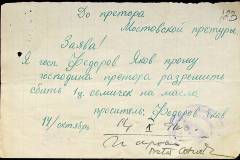 До претора
Мостовской претуры.
Заява!
Я госп Федоров Яков прошу
господина претора разрешить
сбить 1ц. семичек на масло
проситель: Федоров Яков
14/октябрь